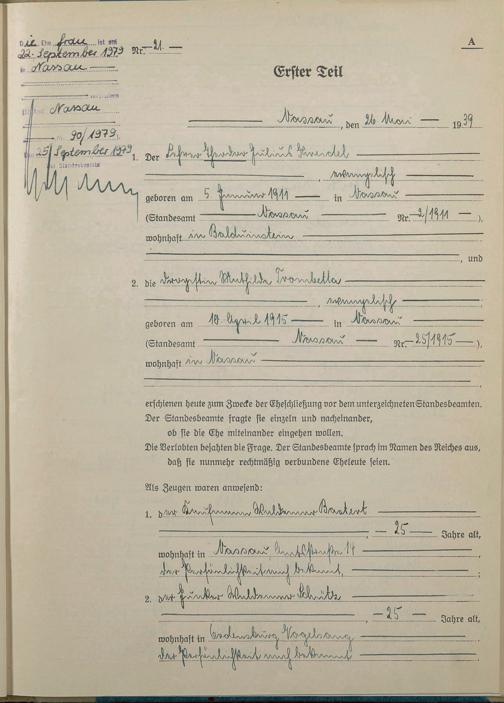 Die Ehefrau ist am
22. September 1979
in Nassau
Nassau
90/1979.
25. September 1979.
Nr. 21.
A
Erster Teil
Nassau, den 26. Mai 1939
1. Der Lehrer Theodor Julius
, evangelisch
geboren am 5. Januar 1911 in Nassau
(Standesamt Nassau Nr. 2/1911).
wohnhaft in Balduinstein
, und
2. die Drogistin Mathilde Trombetta
, evangelisch
geboren am 18. April 1915 in Nassau
(Standesamt Nassau Nr. 25/1915).
wohnhaft in Nassau
erschienen heute zum Zwecke der Eheschließung vor dem unterzeichneten Standesbeamten.
Der Standesbeamte fragte sie einzeln und nacheinander,
ob sie die Ehe miteinander eingehen wollen.
Die Verlobten bejahten die Frage. Der Standesbeamte sprach im Namen des Reiches aus,
daß sie nunmehr rechtmäßig verbundene Eheleute seien.
Als Zeugen waren anwesend:
1. der Kaufmann Waldemar Bastert
, 25 Jahre alt,
wohnhaft in Nassau 14
der Persönlichkeit nach bekannt,
2. der Junker Waldemar Schütz
, 25 Jahre alt,
wohnhaft in Ordensburg Vogelsang
der Persönlichkeit nach bekannt